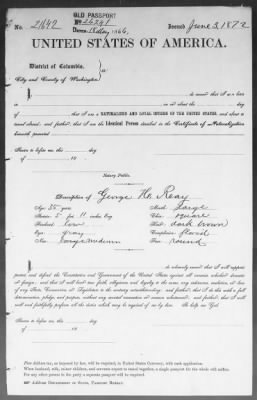 OLD PASSPORT
No. 21642 No. 26241 Issued June 3, 1872
Dated 18 May 1866.
UNITED STATES OF AMERICA.
District of Columbia,
City and County of Washington.
I do swear that I was born
in on about the day
of ; that I am a NATURALIZED AND LOYAL CITIZEN OF THE UNITED STATES, and about to
travel abroad; and further, that I am the Identical Person described in the Certificate of Naturalization
herewith presented.
Sworn to before me, this day
of 18
Notary Public.
Description of George H. Reay
Age: 35 years Mouth: large
Stature: 5 feet 11 inches Eng. Chin: square
Forehead: low Hair: dark brown
Eyes: gray Complexion: florid
Nose: large medium Face: round
I do solemnly swear that I will support,
protect, and defend the Constitution and Government of the United States against all enemies, whether domestic
or foreign; and that I will bear true faith, allegiance and loyalty to the same, any ordinance, resolution, or law
of any State, Convention, or Legislature to the contrary notwithstanding; and further, that I do this with a full
determination, pledge, and purpose, without any mental reservation or evasion whatsoever; and further, that I
will well and faithfully perform all the duties which may be required of me by law. So help me God.
Sworn to before me, this day
of 18
Five dollars tax, as imposed by law, will be required in United States Currency, with each application.
When husband, wife, minor children, and servants expect to travel together, a single passport for the whole will suffice.
For any other person in the party a separate passport will be required.
Address Department of State, Passport Bureau.